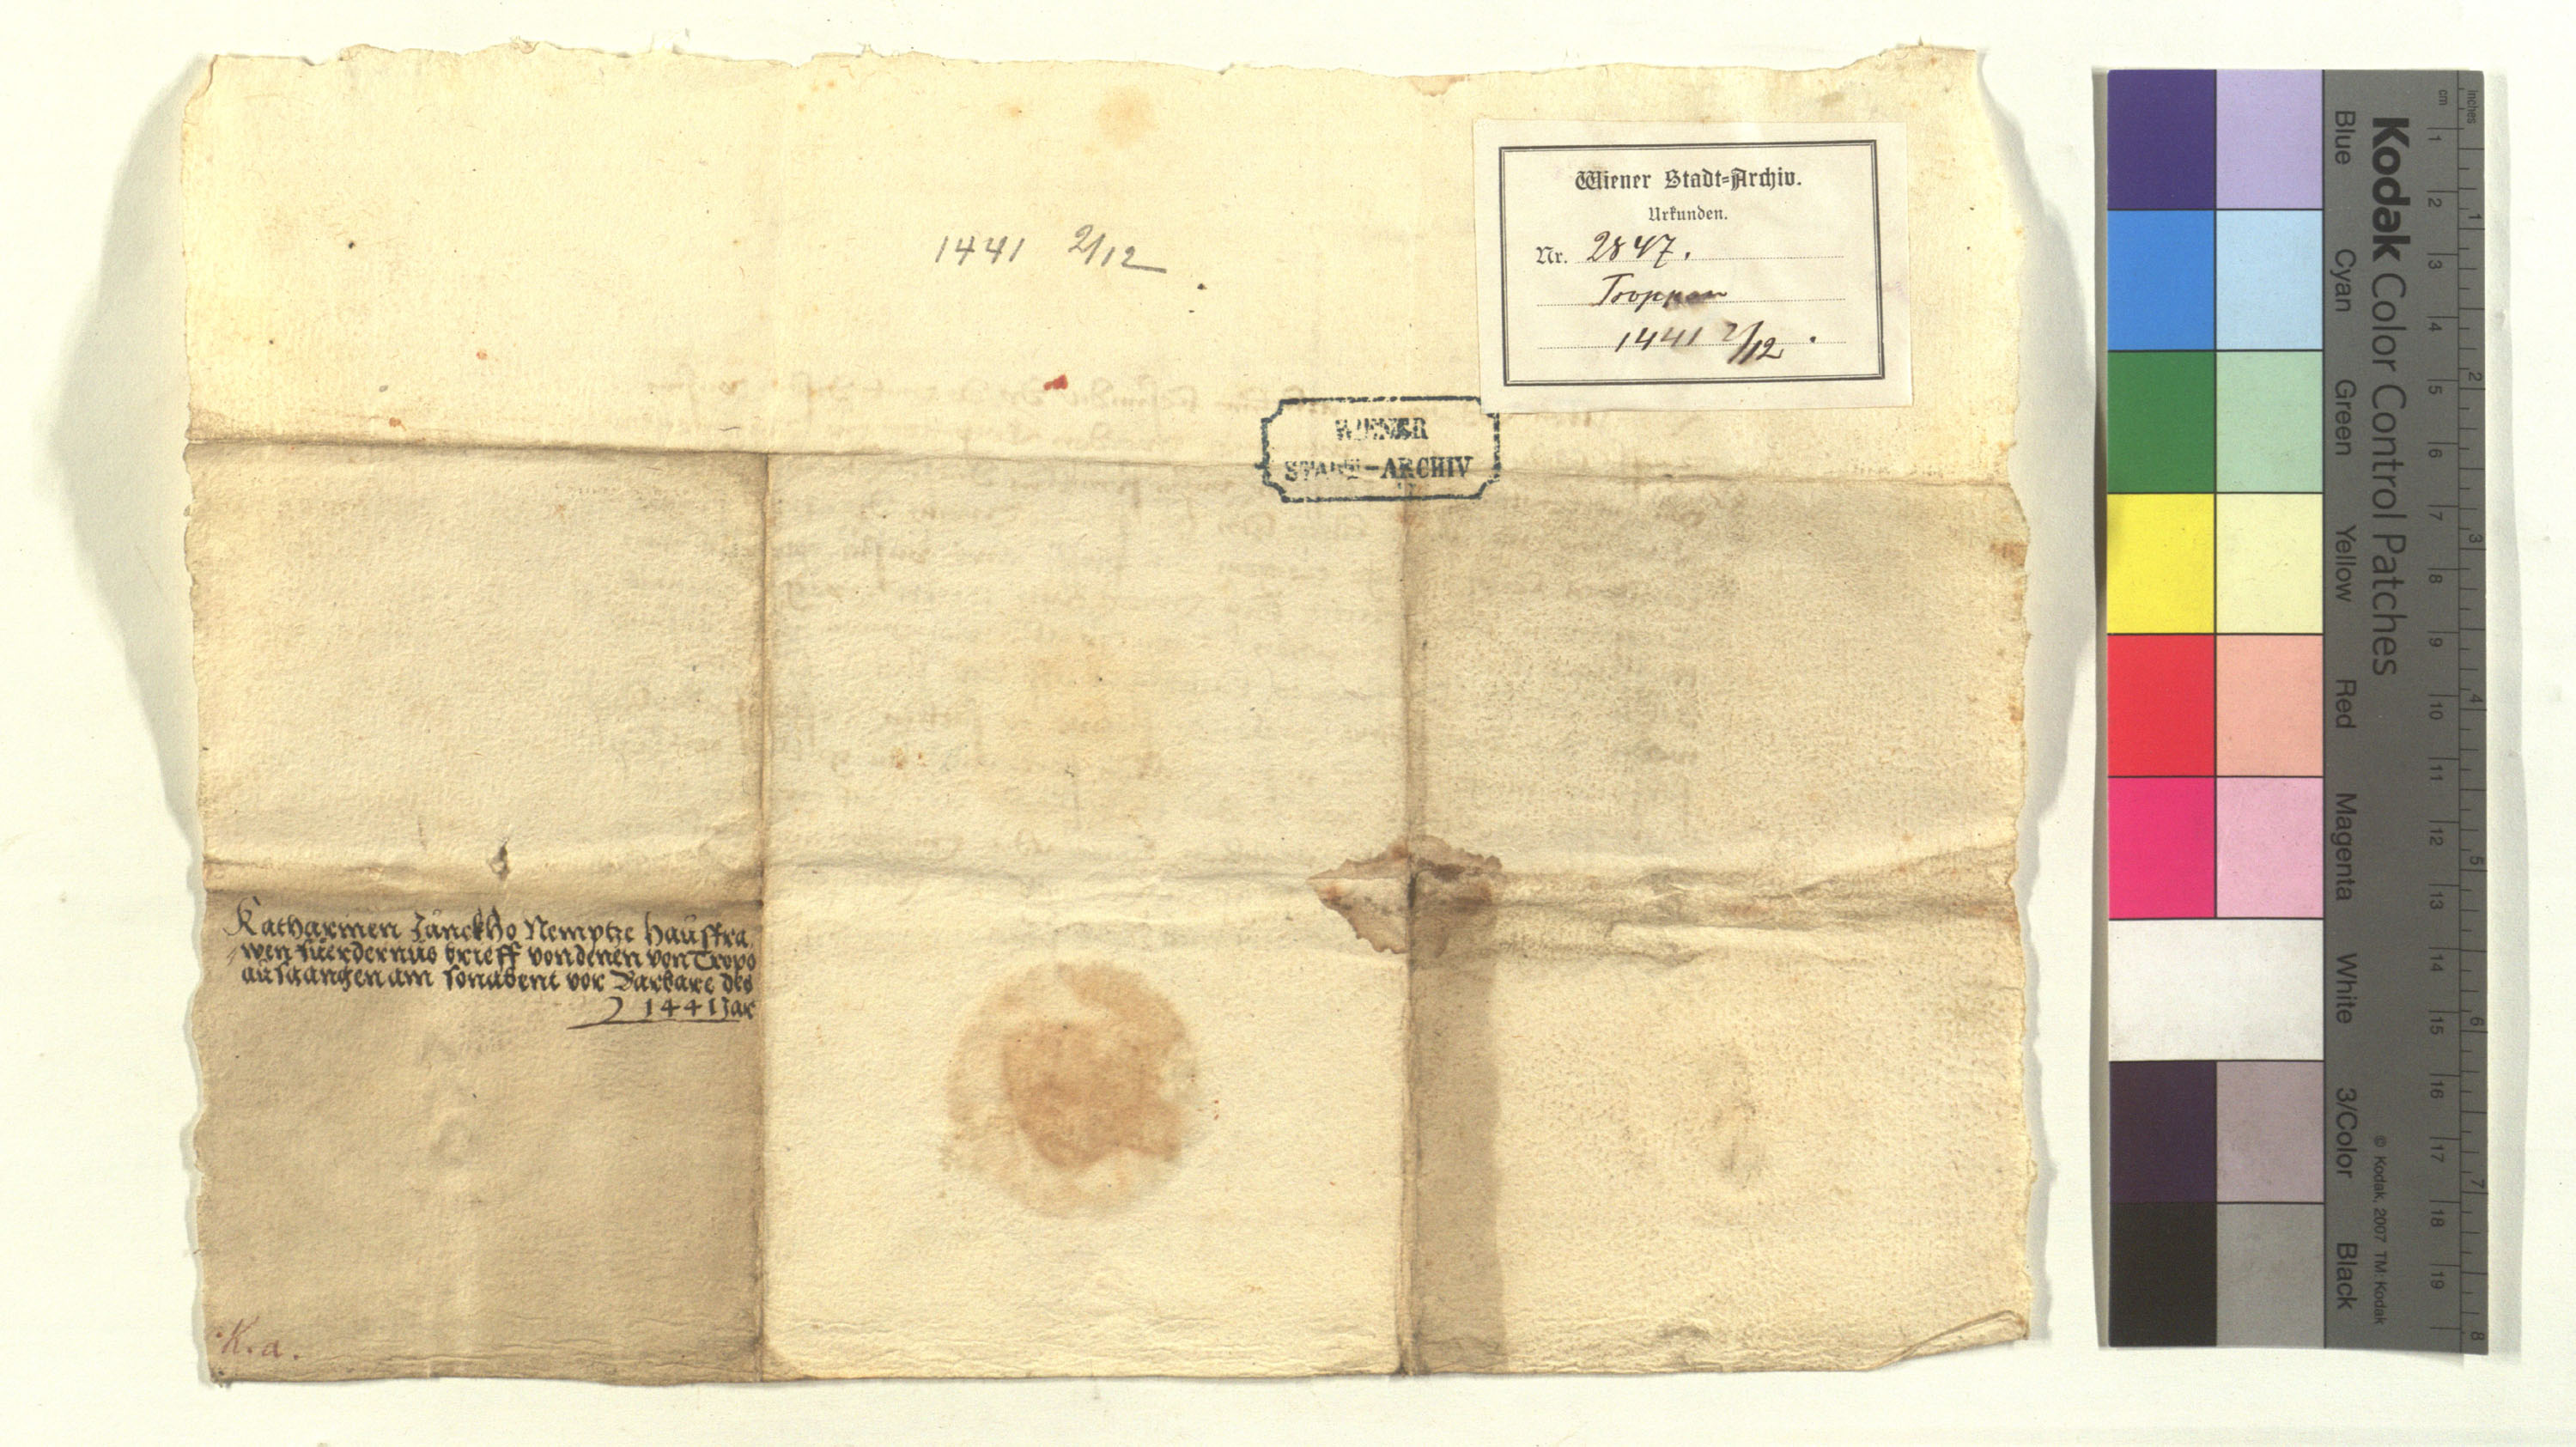 1441 2/12
Wiener Stadt=Archiv.
Urkunden.
Nr. 2847.
Troppau
1441 2/12.
WIENER
STADT-ARCHIV
Katharinen Janckho Nemptze hausfra
wen fuerdernus brieff von denen von Tropo
ausgangen am sonabent vor Barbare des
1441 Jar
K. a.
Kodak Color Control Patches
Blue Cyan Green Yellow Red Magenta White 3/Color Black
© Kodak, 2007 TM: Kodak
cm 1 2 3 4 5 6 7 8 9 10 11 12 13 14 15 16 17 18 19
Inches 1 2 3 4 5 6 7 8